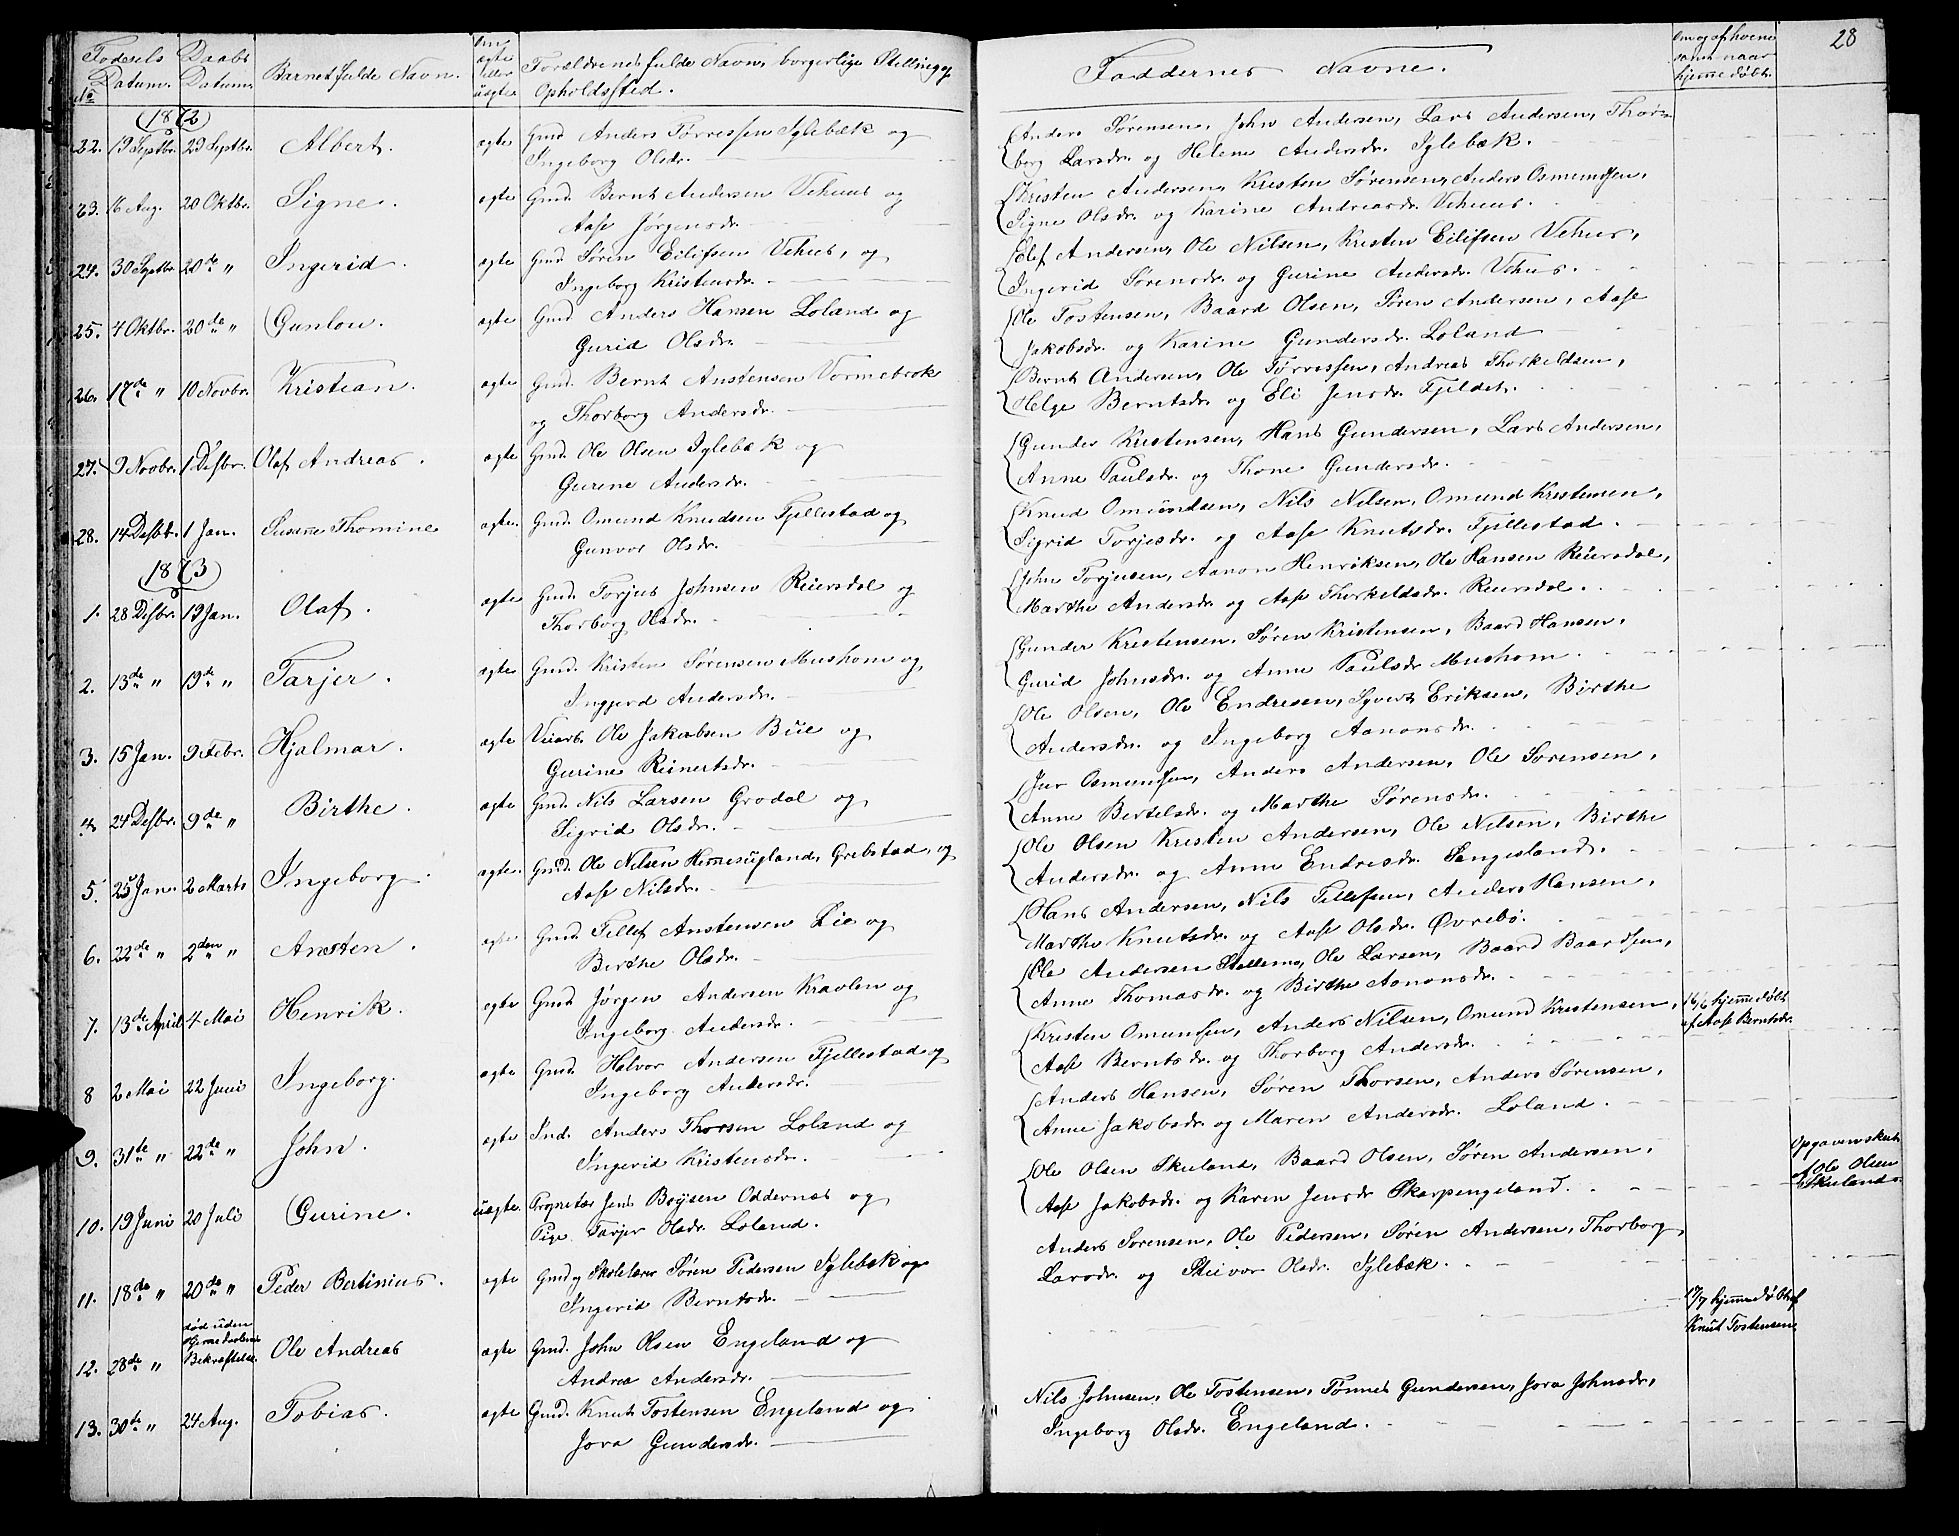 28
Fødsels Datum. Daabs Datum. Barnets fulde Navn. Om ægte eller uægte Forældrenes fulde Navn, borgerlige Stilling og Opholdssted. Faddernes Navne. Om og af hvem samt naar hjemmedøbt.
No
1872
22. 19 Septbr. 29 Septbr. Albert. ægte Gmd. Anders Tørressen Iglebæk og
Ingeborg Olsdr.
Anders Sørensen, John Andersen, Lars Andersen, Thor-
borg Larsdr. og Helene Andersdr. Iglebæk.
23. 16 Aug. 20 Oktbr. Signe. ægte Gmd. Bernt Andersen Vehuus og
Aase Jørgensdr.
Kristen Andersen, Kristen Sørensen, Anders Osmundsen,
Signe Olsdr. og Karine Andreasdr. Vehuus.
24. 30 Septbr. 20de " Ingerid. ægte Gmd. Søren Eilifsen Vehus, og
Ingeborg Kristensdr.
Elef Andersen, Ole Nilsen, Kristen Eilifsen Vehus,
Ingerid Sørensdr. og Gurine Andersdr. Vehus.
25. 4 Oktbr. 20de " Gunlou. ægte Gmd. Anders Hansen Loland og
Gurid Olsdr.
Ole Tostensen, Baard Olsen, Søren Andersen, Aase
Jakobsdr. og Karine Gundersdr. Loland
26. 17de " 10 Novbr. Kristian. ægte Gmd. Bernt Anstensen Vormebrok
og Thorborg Andersdr.
Bernt Andersen, Ole Tørressen, Andreas Thorkildsen,
Helge Berntsdr. og Eli Jensdr. Fjeldet.
27. 9 Novbr. 1 Desbr. Olaf Andreas. ægte Gmd. Ole Olsen Iglebæk og
Gurine Andersdr.
Gunder Kristensen, Hans Gundersen, Lars Andersen,
Anne Paulsdr. og Thone Gundersdr.
28. 14 Desbr. 1 Jan. Susanne Thomine ægte. Gmd. Omund Knudsen Fjellestad og
Gunvor Olsdr.
Knud Omundsen, Nils Nilsen, Omund Kristensen,
Sigrid Torjesdr. og Aase Knutsdr. Fjellestad.
1873
1. 28 Desbr. 19 Jan. Olaf. ægte Gmd. Torjus Johnsen Reiersdal og
Thorborg Olsdr.
John Torjusen, Aanon Henriksen, Ole Hansen Reiersdal,
Marthe Andersdr. og Aase Thorkildsdr. Reiersdal.
2. 13de " 19de " Tarjer. ægte Gmd. Kristen Sørensen Mushom og,
Inggerd Andersdr.
Gunder Kristensen, Søren Kristensen, Baard Hansen,
Gurid Johnsdr. og Anne Paulsdr Mushom.
3. 15 Jan. 9 Febr. Hjalmar. ægte Veiarb. Ole Jakobsen Bue og
Gurine Reinertsdr.
Ole Olsen, Ole Endresen, Syvert Eriksen, Birthe
Andersdr. og Ingeborg Aanonsdr.
4. 24 Desbr. 9de " Birthe. ægte Gmd. Nils Larsen Grodal og
Sigrid Olsdr.
Iver Osmundsen, Anders Andersen, Ole Sørensen,
Anne Bertelsdr. og Marthe Sørensdr.
5. 25 Jan. 2 Marts Ingeborg. ægte. Gmd. Ole Nilsen Homesugland, Grebstad, og
Aase Nilsdr.
Ole Olsen Kristen Andersen, Ole Nilsen, Birthe
Andersdr. og Anne Endresdr. Sangesland.
6. 22de " 2den " Ansten. ægte Gmd. Tellef Anstensen Lie og
Birthe Olsdr.
Hans Andersen, Nils Tellefsen, Anders Hansen,
Marthe Knutsdr. og Aase Olsdr. Øvrebø.
7. 13de April 4 Mai Henrik. ægte Gmd. Jørgen Andersen Kraolen og
Ingeborg Andersdr.
Ole Andersen Stallemo, Ole Larsen, Baard Baardsen,
Anne Thomasdr. og Birthe Aanonsdr.
8 2 Mai 22 Juni Ingeborg. ægte Gmd. Halvor Andersen Fjellestad og
Ingeborg Andersdr.
Kristen Omundsen, Anders Nilsen, Omund Kristensen,
Aase Berntsdr. og Thorborg Andersdr.
16/6 hjemmedøbt
af Aase Berntsdr.
9. 31de " 22de " John. ægte Ind. Anders Thorsen Loland og
Ingerid Kristensdr.
Anders Hansen, Søren Thorsen, Anders Sørensen,
Anne Jakobsdr. og Maren Andersdr. Loland.
10. 19 Juni 20 Juli Gurine. uægte. Proprietær Jens Boysen Oddernes og
Pige Tarjer Olsdr. Loland.
Ole Olsen Skuland, Baard Olsen, Søren Andersen,
Aase Jakobsdr. og Karen Jensdr Skarpengeland.
Opgaven skeet
af Ole Olsen
Skuland.
11. 18de " 20de " Peder Bertinius. ægte Gmd og Skolelærer Søren Pedersen Iglebæk og
Ingerid Berntsdr.
Anders Sørensen, Ole Pedersen, Søren Andersen, Thorborg
Larsdr. og Olsdr. Iglebæk.
12. 28de " død uden
Hjemmedaabens
Bekræftelse. Ole Andreas ægte Gmd. John Olsen Engeland og
Andrea Andersdr.
17/7 hjemmedøbt af
Knut Tostensen
13. 30te " 24 Aug. Tobias. ægte Gmd. Knut Tostensen Engeland og
Jora Gundersdr.
Nils Johnsen, Ole Tostensen, Tønnes Gundersen, Jora Johnsdr,
Ingeborg Olsdr. Engeland.